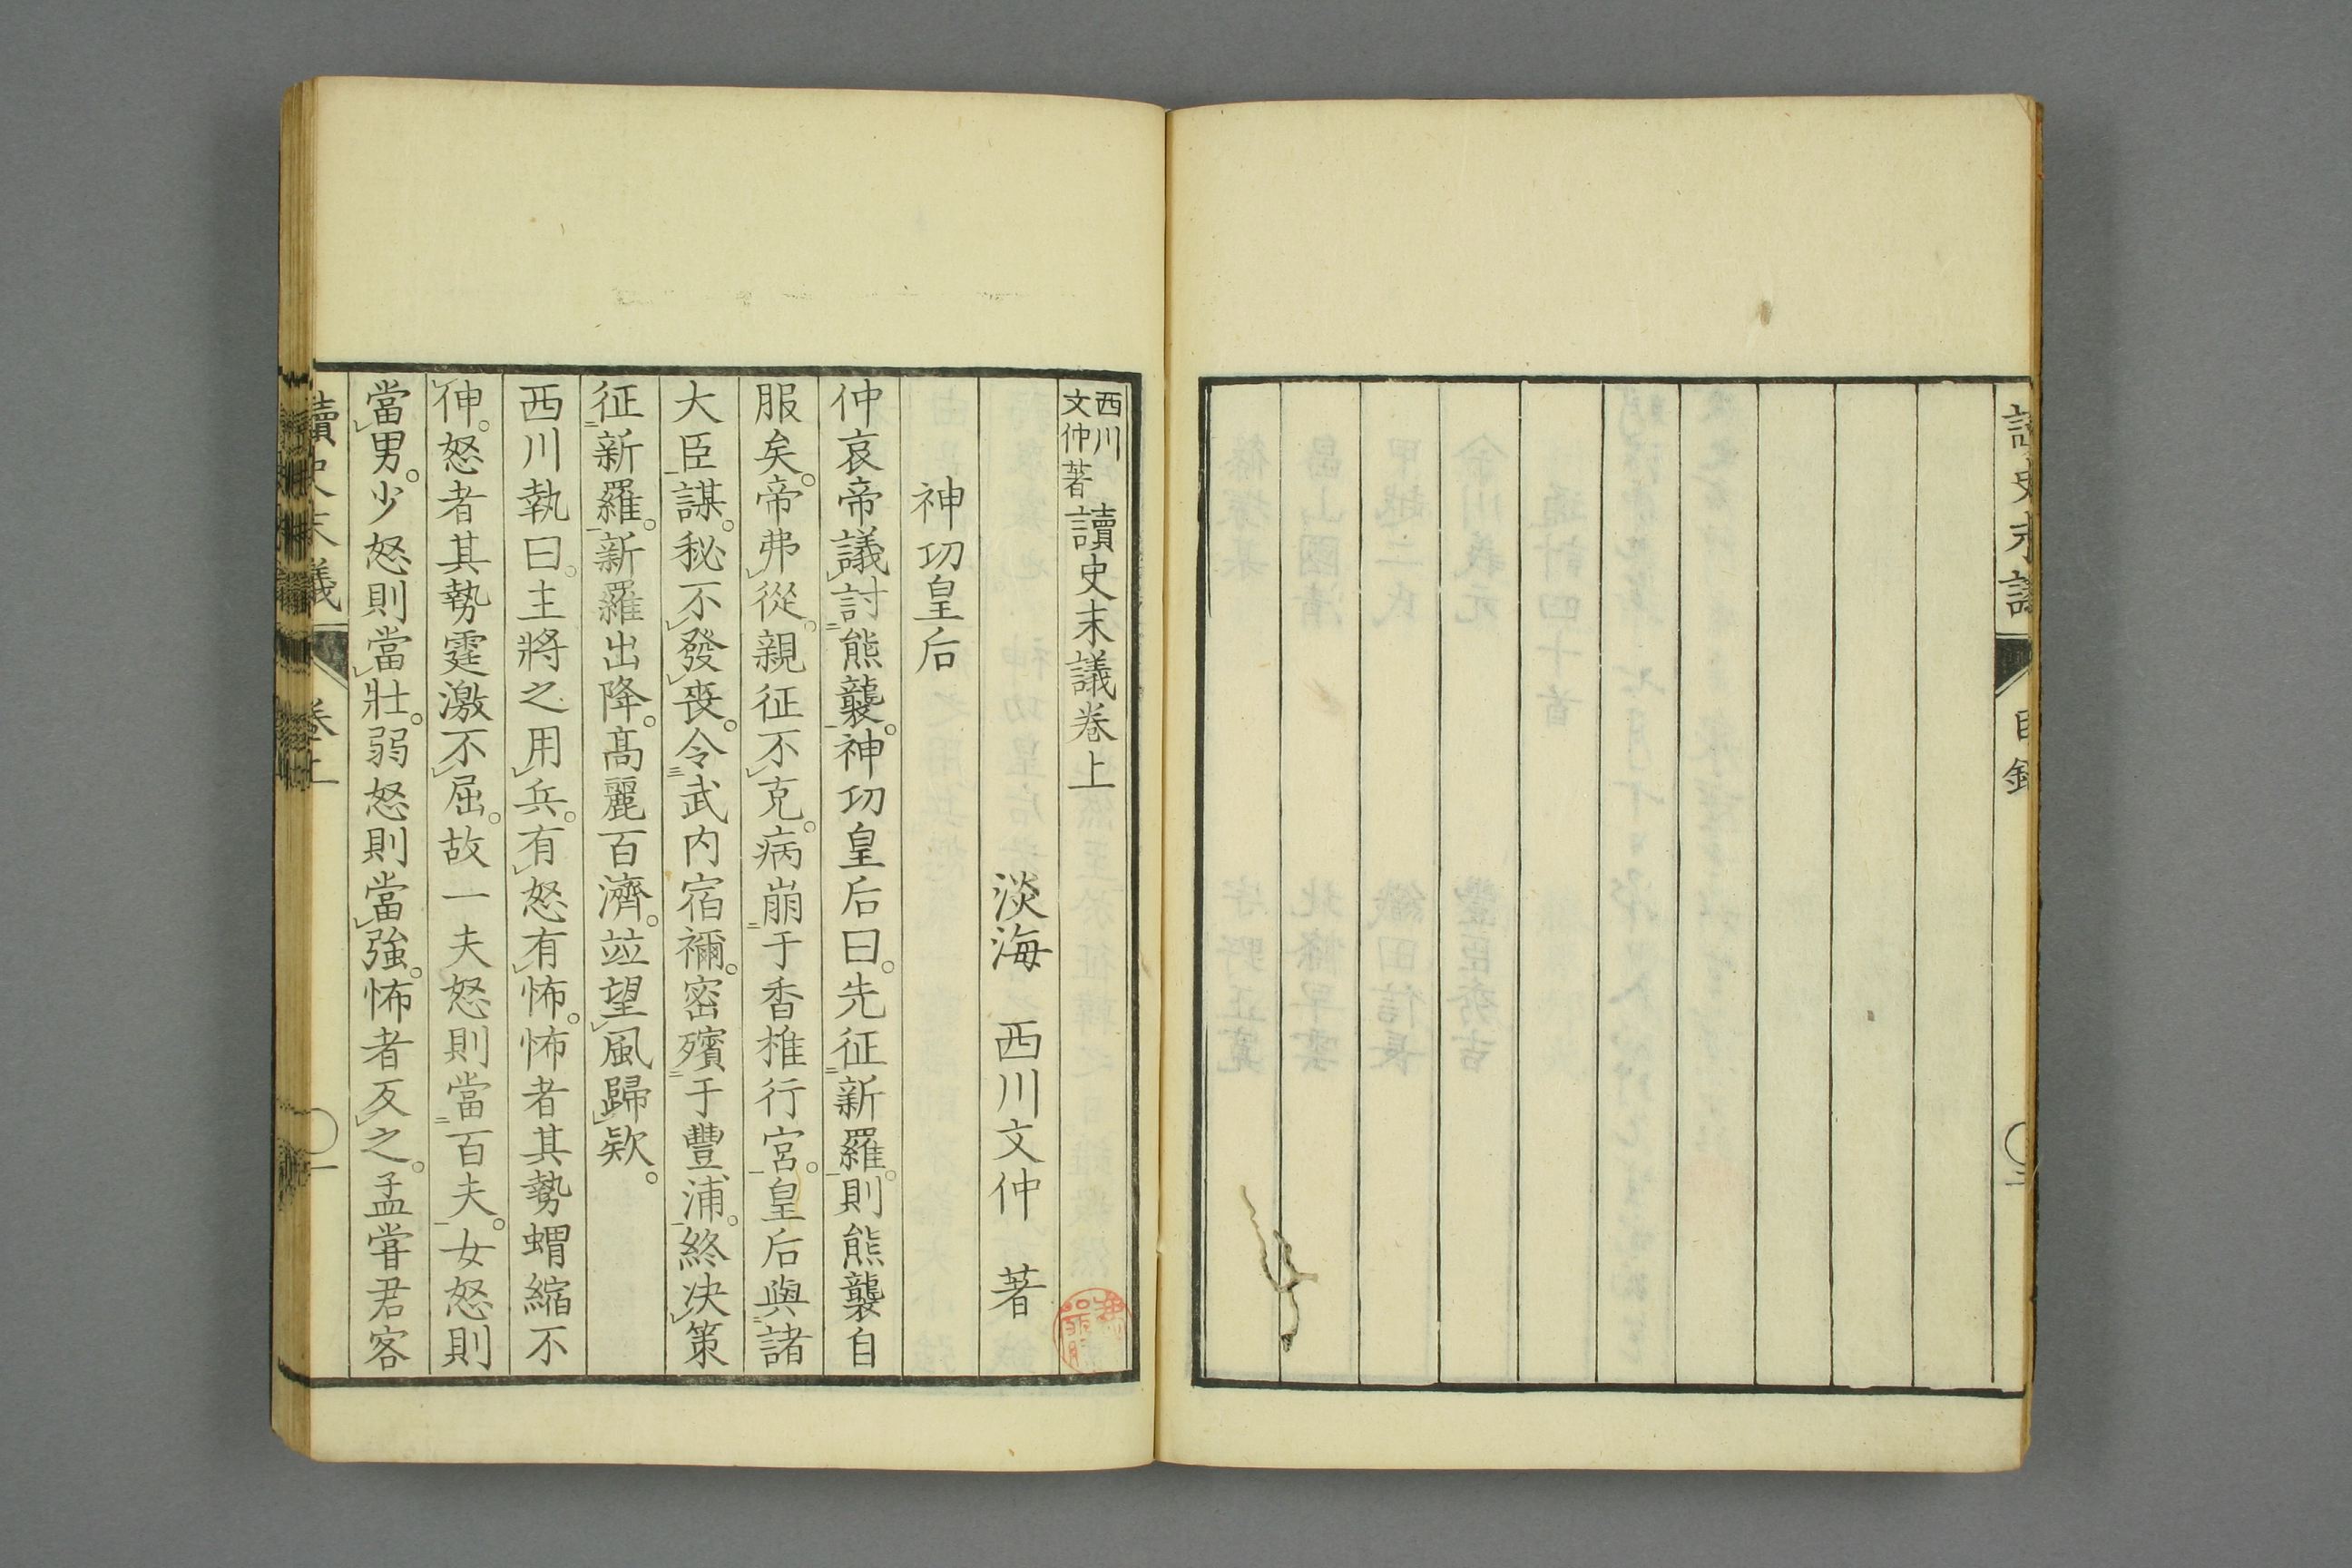 西川
文仲著讀史末議卷上
淡海　西川文仲　著
神功皇后
仲哀帝議討熊襲。神功皇后曰。先征新羅。則熊襲自
服矣。帝弗從。親征不克。病崩于香椎行宮。皇后與諸
大臣謀。秘不發喪。令武内宿禰。密殯于豐浦。終决策
征新羅。新羅出降。高麗百濟。竝望風歸欵。
西川執曰。主將之用兵。有怒有怖。怖者其勢蝟縮不
伸。怒者其勢霆激不屈。故一夫怒則當百夫。女怒則
當男。少怒則當壯。弱怒則當強。怖者反之。孟甞君客
讀史末議
卷上
一